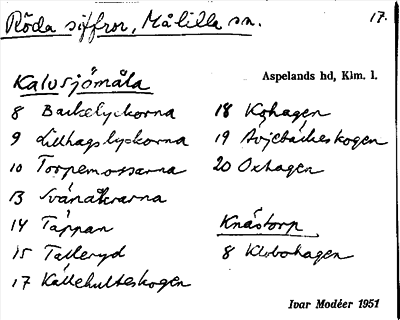 Röda siffror, Målilla sn.
17.
Aspelands hd, Klm. l.
Kalvsjömåla
8 Backelyckorna
9 Lillhagslyckorna
10 Torpemossarna
13 Svänåkrarna
14 Täppan
15 Talleryd
17 Källehulteskogen
18 Kohagen
19 Svjebäckeskogen
20 Oxhagen
Knästorp
8 Klobohagen
Ivar Modéer 1951